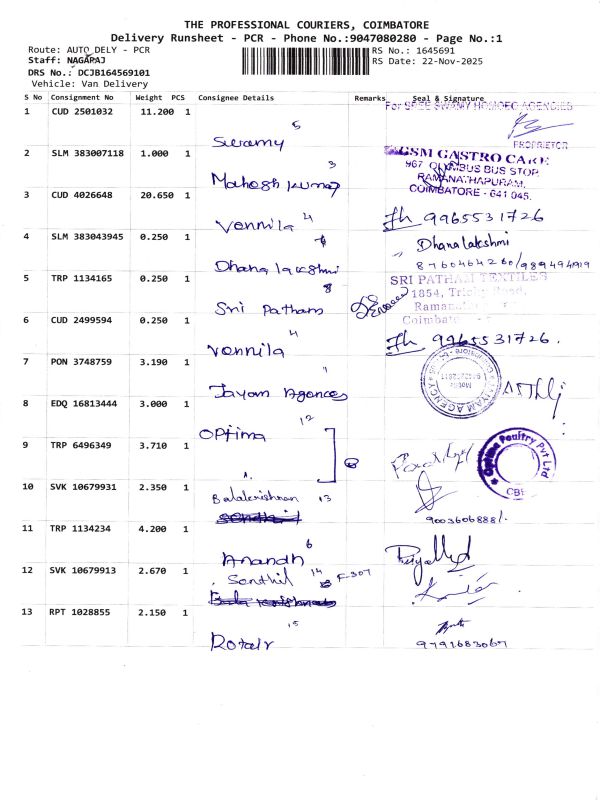 THE PROFESSIONAL COURIERS, COIMBATORE
Delivery Runsheet - PCR - Phone No.:9047080280 - Page No.:1
Route: AUTO DELY - PCR RS No.: 1645691
Staff: NAGARAJ RS Date: 22-Nov-2025
DRS No.: DCJB164569101
Vehicle: Van Delivery
S No Consignment No Weight PCS Consignee Details Remarks Seal & Signature
1 CUD 2501032 11.200 1 For SREE SWAMY HOMOEO AGENCIES
5
Swamy PROPRIETOR
2 SLM 383007118 1.000 1 GSM GASTRO CARE
3 967 OLYMBUS BUS STOP
Mahesh kumar RAMANATHAPURAM,
3 CUD 4026648 20.650 1 COIMBATORE - 641 045.
4
Vennila 9965531726
4 SLM 383043945 0.250 1 Dhanalakshmi
Dhanalakshmi
5 TRP 1134165 0.250 1 SRI PATHAM TEXTILES
8 1854, Trichy Road,
Sri Patham Ramana
6 CUD 2499594 0.250 1 Coimbatore
4
Vennila 9965531726.
7 PON 3748759 3.190 1
Jayam Agences
8 EDQ 16813444 3.000 1
12
Optima
9 TRP 6496349 3.710 1 Optima Poultry Pvt Ltd
CBE
10 SVK 10679931 2.350 1
Balakrishnan 13
9003606888/-
11 TRP 1134234 4.200 1
6
Anandh
12 SVK 10679913 2.670 1
Senthil 14 F-307
13 RPT 1028855 2.150 1
15
Rotair 9791683067